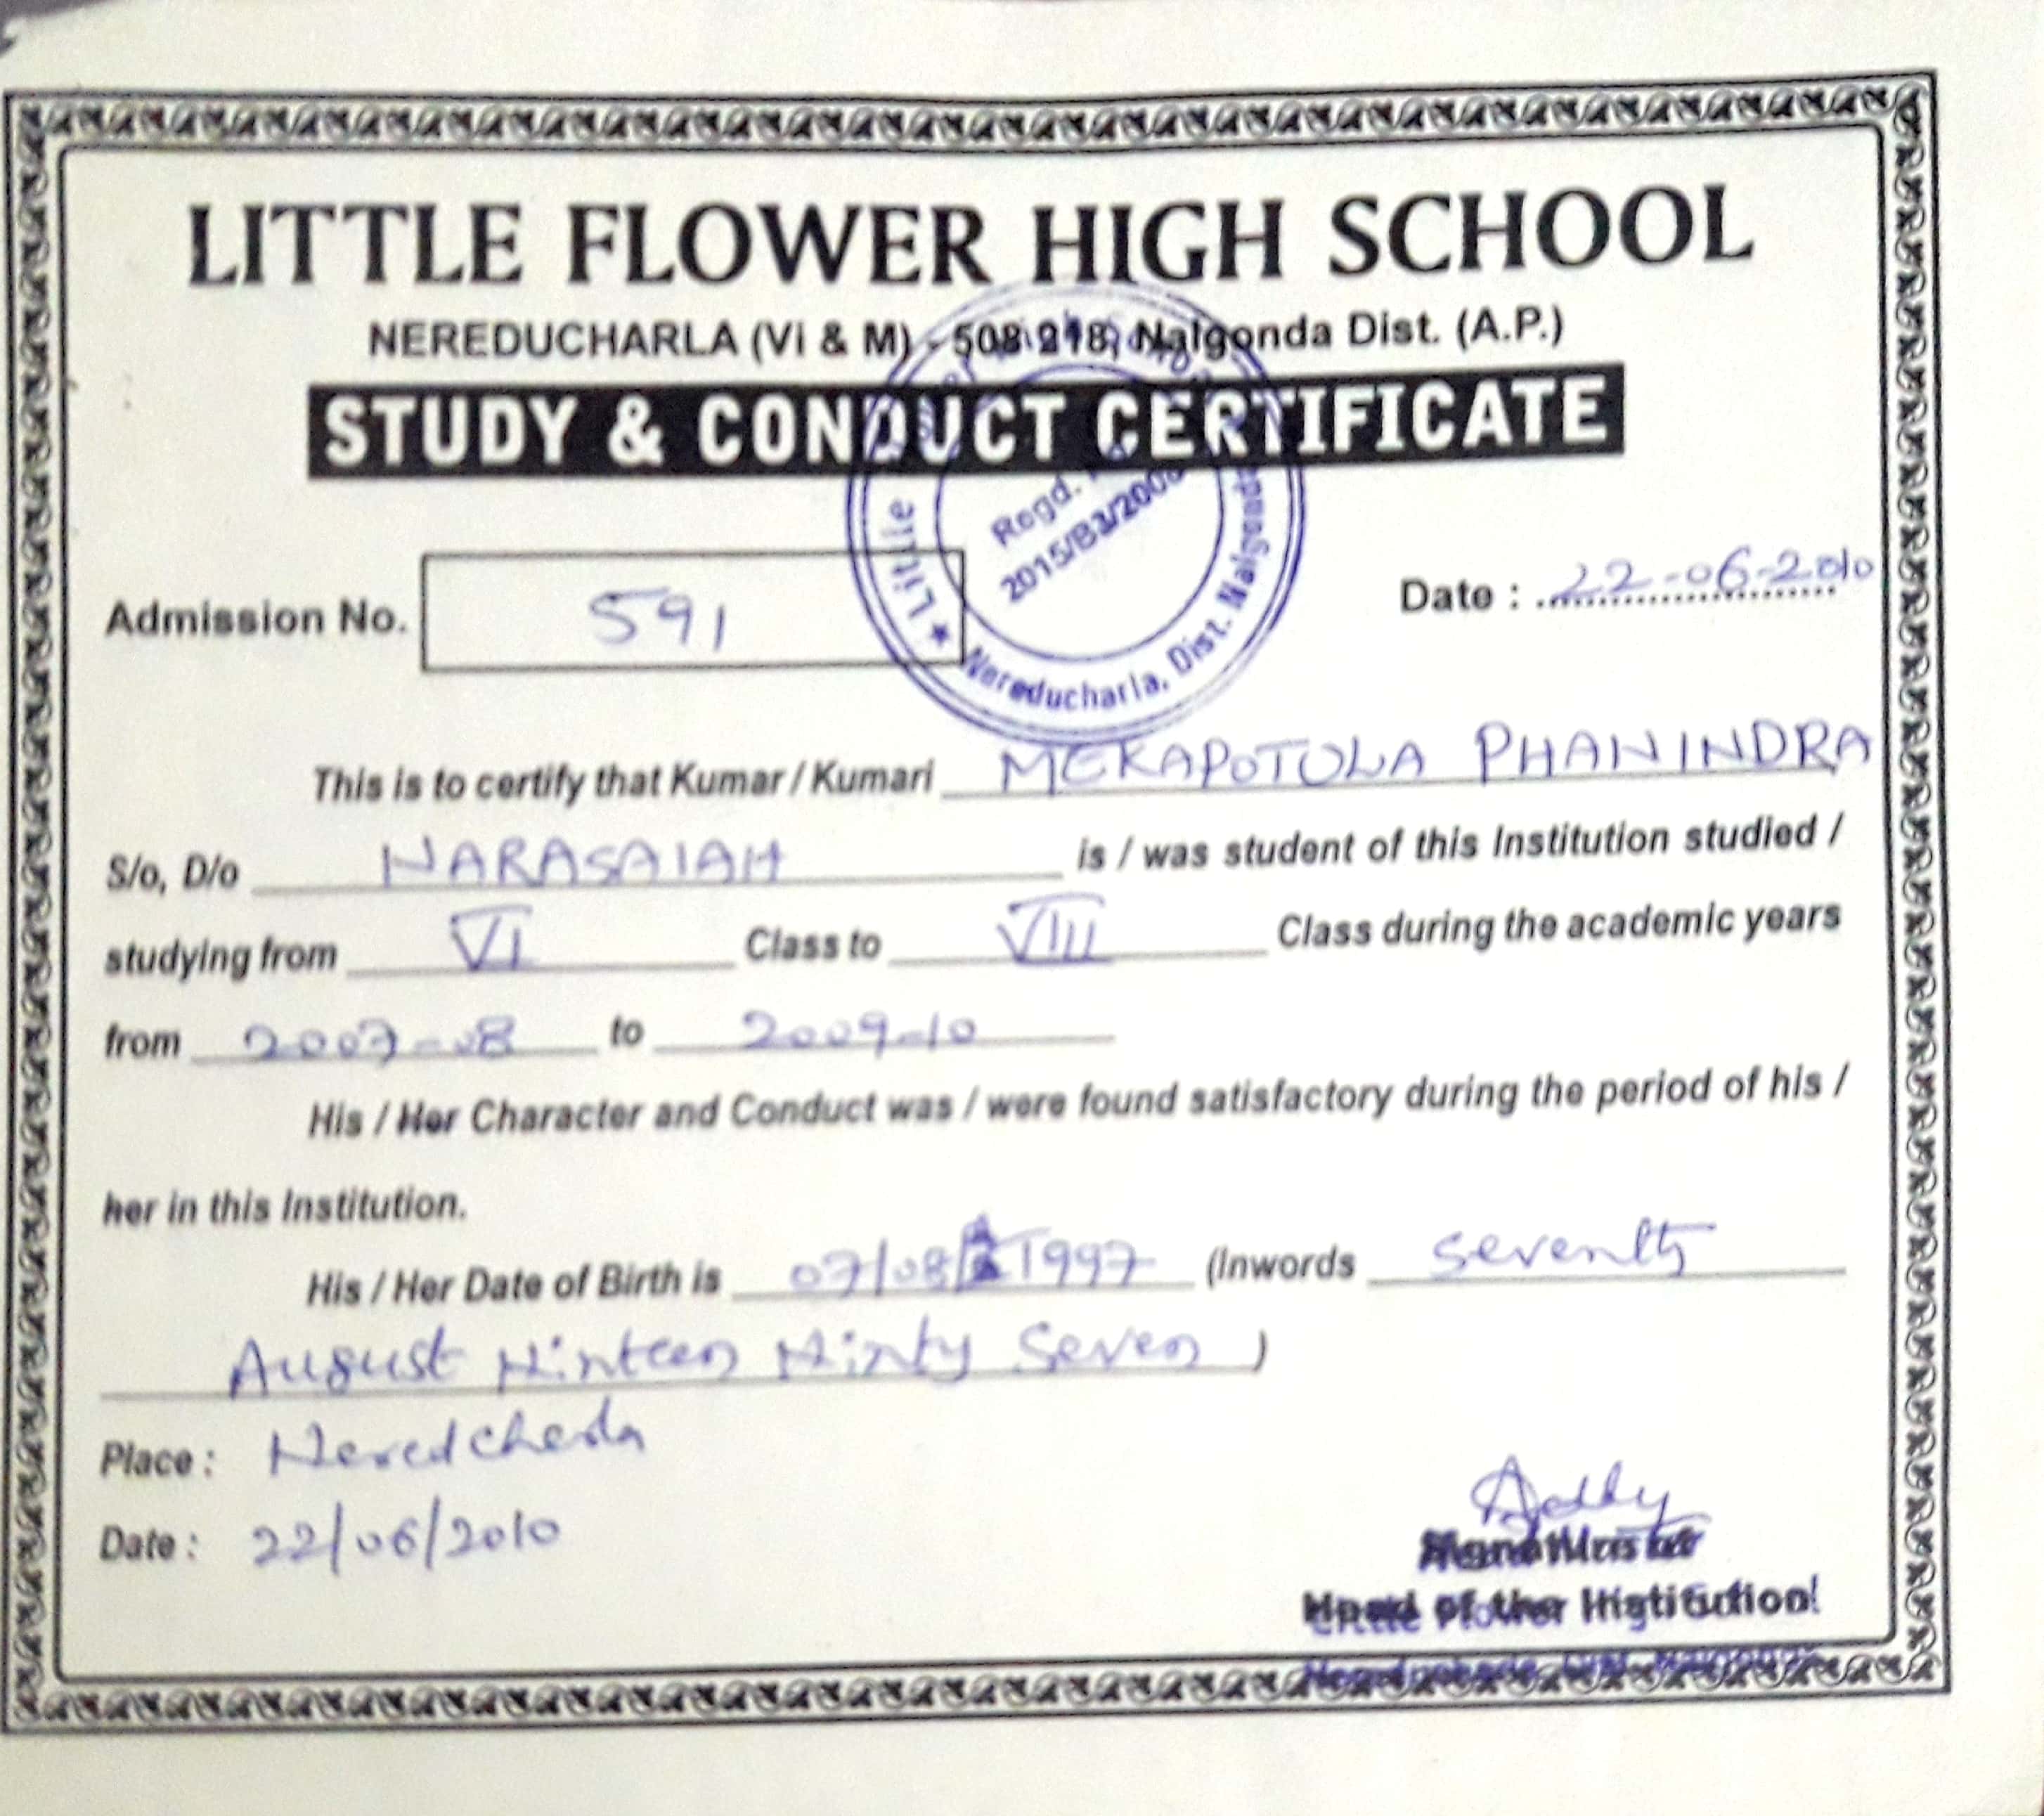 LITTLE FLOWER HIGH SCHOOL
NEREDUCHARLA (Vi & M) - 508 218, Nalgonda Dist. (A.P.)
STUDY & CONDUCT CERTIFICATE
Little
Regd.
2015/B3/2008
Nereducharla, Dist. Nalgonda
Admission No. 591
Date : 22-06-2010
This is to certify that Kumar / Kumari MEKAPOTULA PHANINDRA
S/o, D/o NARASAIAH is / was student of this Institution studied /
studying from VI Class to VIII Class during the academic years
from 2007-08 to 2009-10
His / Her Character and Conduct was / were found satisfactory during the period of his /
her in this Institution.
His / Her Date of Birth is 07/08/1997 (Inwords Seventh
August Ninteen Ninty Seven )
Place : Neredcherla
Date : 22/06/2010
Head of the Institution